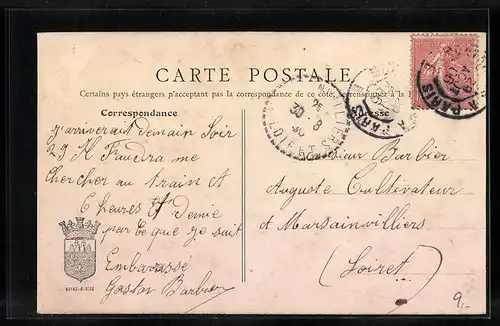 CARTE POSTALE
Certains pays étrangers n'acceptant pas la correspondance de ce côté, se renseigner à la
Correspondance
J'arriverait Demain Soir
Il Faudra me
Chercher au train At
6 heures Et Demie
par ce que je suit
Embarassé
Gaston Barbier
Monsieur Barbier
Auguste Cultivateur
At Marsainvilliers
(Loiret)
A PARIS
30 8
LOIRET
9,-